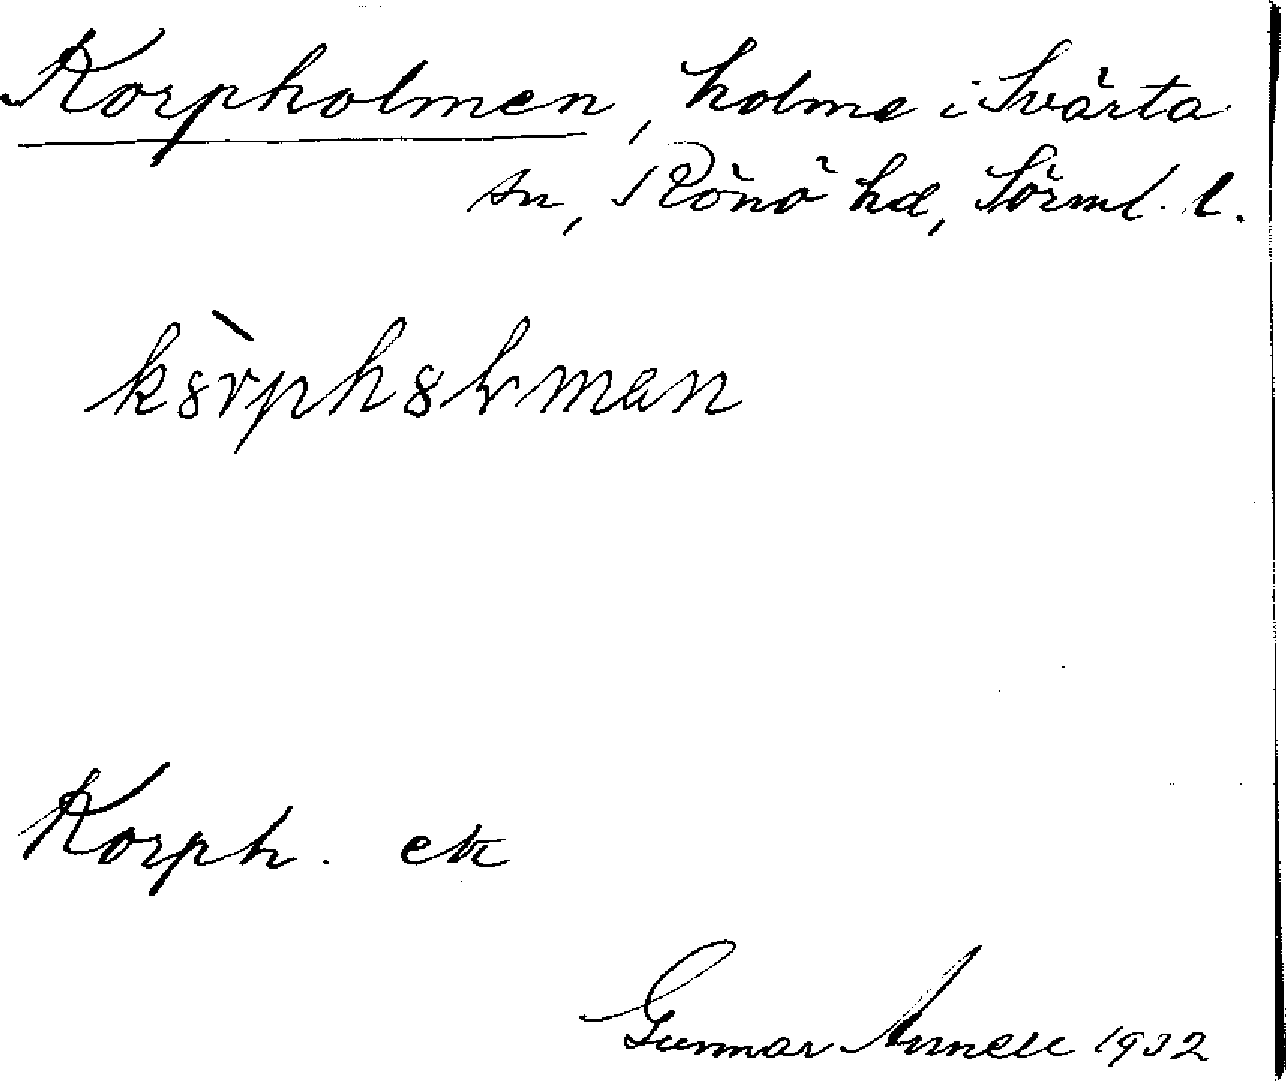 Korpholmen, holme i Svärta
sn, Rönö hd, Sörml. l.
kàrphàlmen
Korph. ek
Gunnar 1932